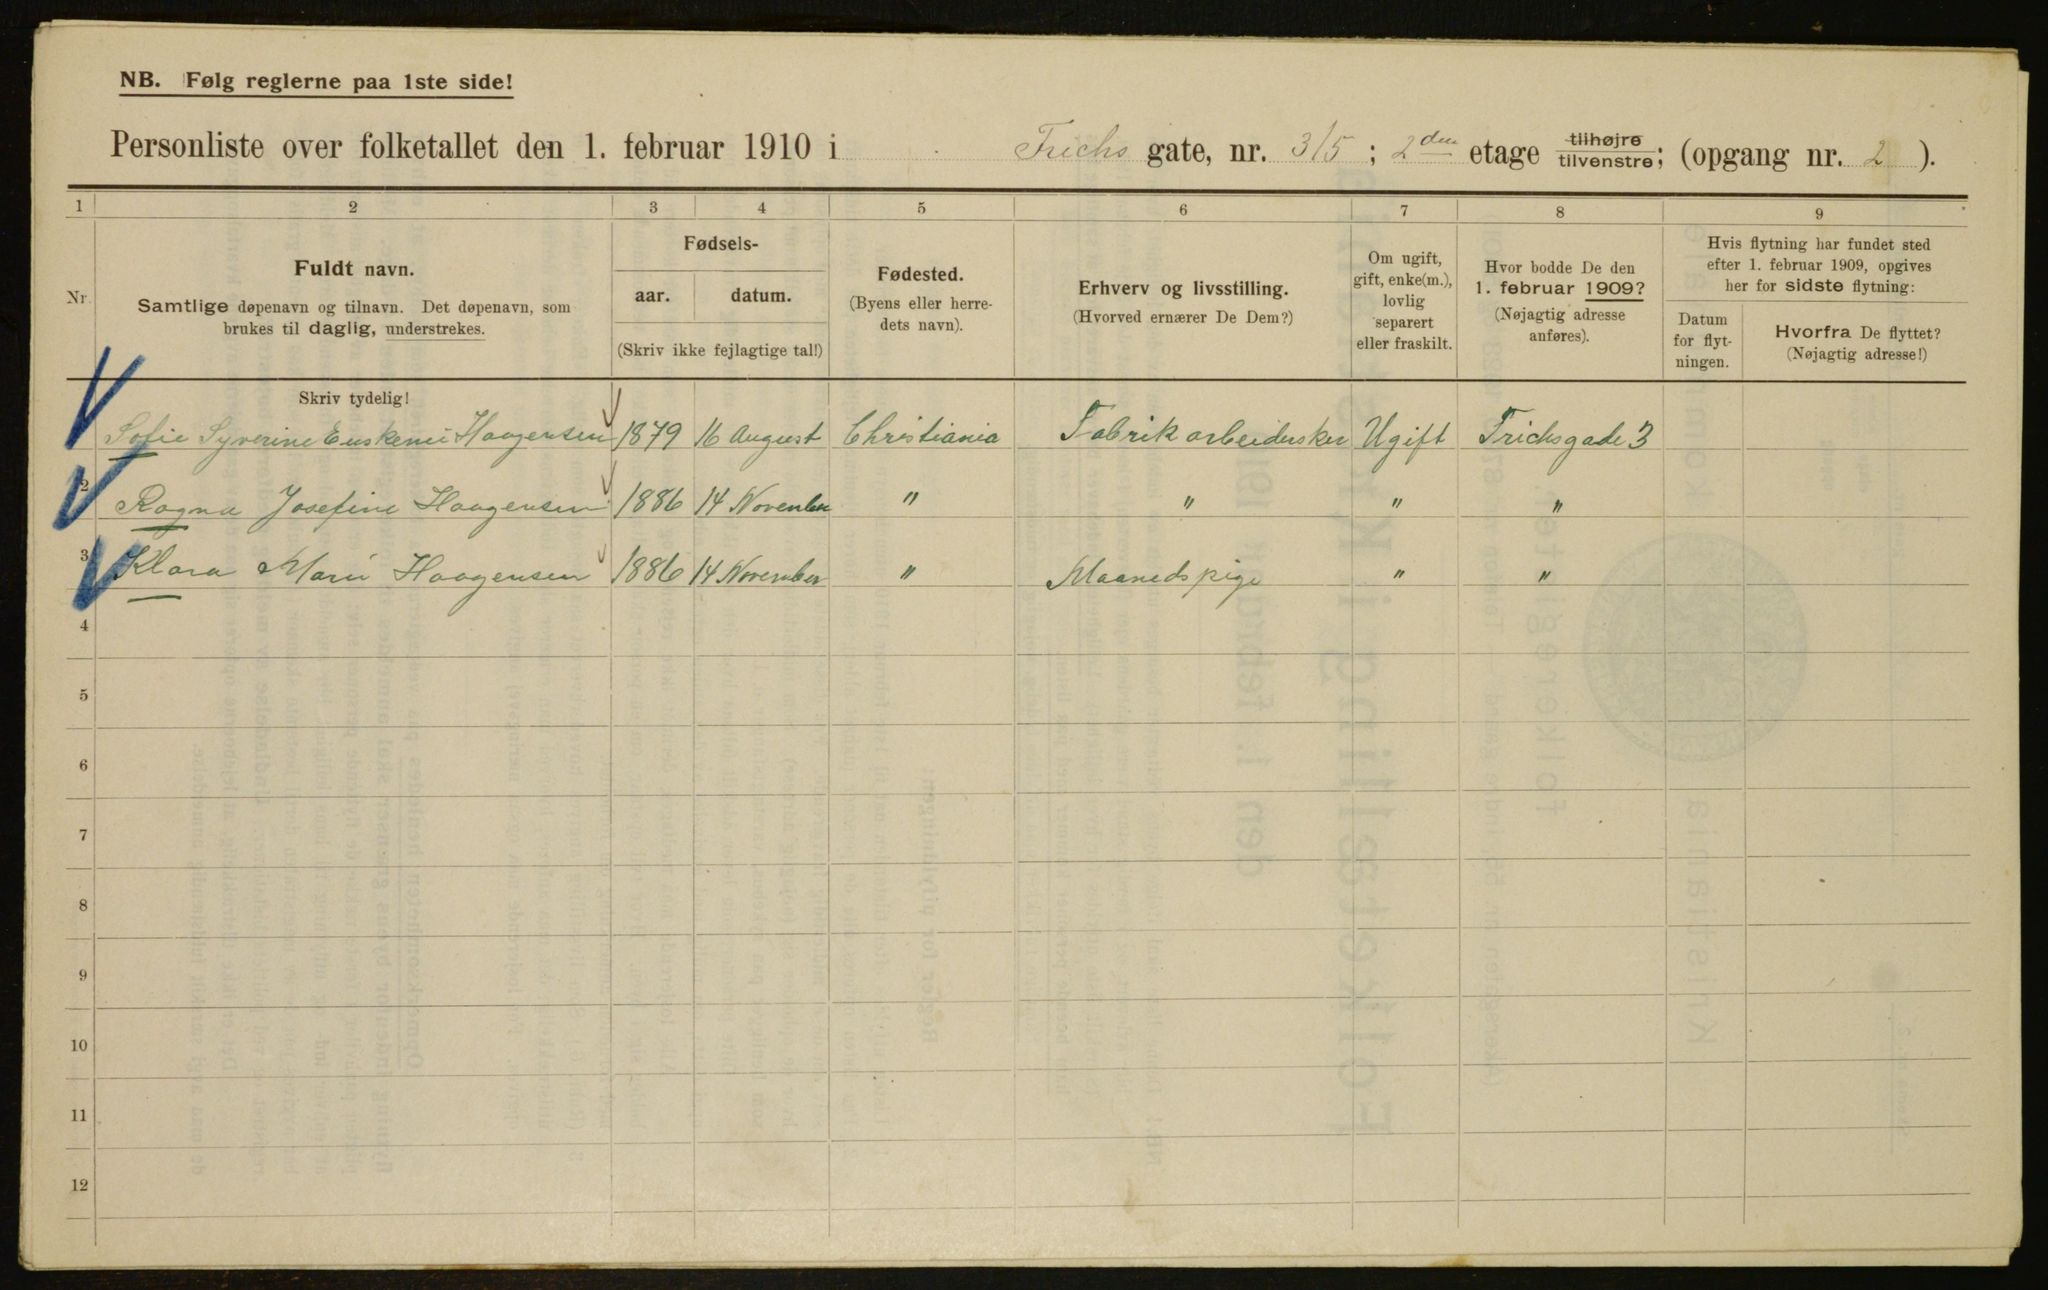 NB. Følg reglerne paa 1ste side!
Personliste over folketallet den 1. februar 1910 i Frichs gate, nr. 3/5 ; 2den etage tilhøjre tilvenstre; (opgang nr. 2 ).
1 2 3 4 5 6 7 8 9
Nr.
Fuldt navn.
Samtlige døpenavn og tilnavn. Det døpenavn, som
brukes til daglig, understrekes.
Fødsels-
aar. datum.
(Skriv ikke fejlagtige tal!)
Fødested.
(Byens eller herre-
dets navn).
Erhverv og livsstilling.
(Hvorved ernærer De Dem?)
Om ugift,
gift, enke(m.),
lovlig
separert
eller fraskilt.
Hvor bodde De den
1. februar 1909?
(Nøjagtig adresse
anføres).
Hvis flytning har fundet sted
efter 1. februar 1909, opgives
her for sidste flytning:
Datum
for flyt-
ningen.
Hvorfra De flyttet?
(Nøjagtig adresse!)
Skriv tydelig!
Sofie Syverine Haagensen 1879 16 August Christiania Fabrikarbeiderske Ugift Frichsgade 3
2 Ragna Josefine Haagensen 1886 14 November " " " "
3 Klara Marie Haagensen 1886 14 November " Maanedspige " "
4
5
6
7
8
9
10
11
12